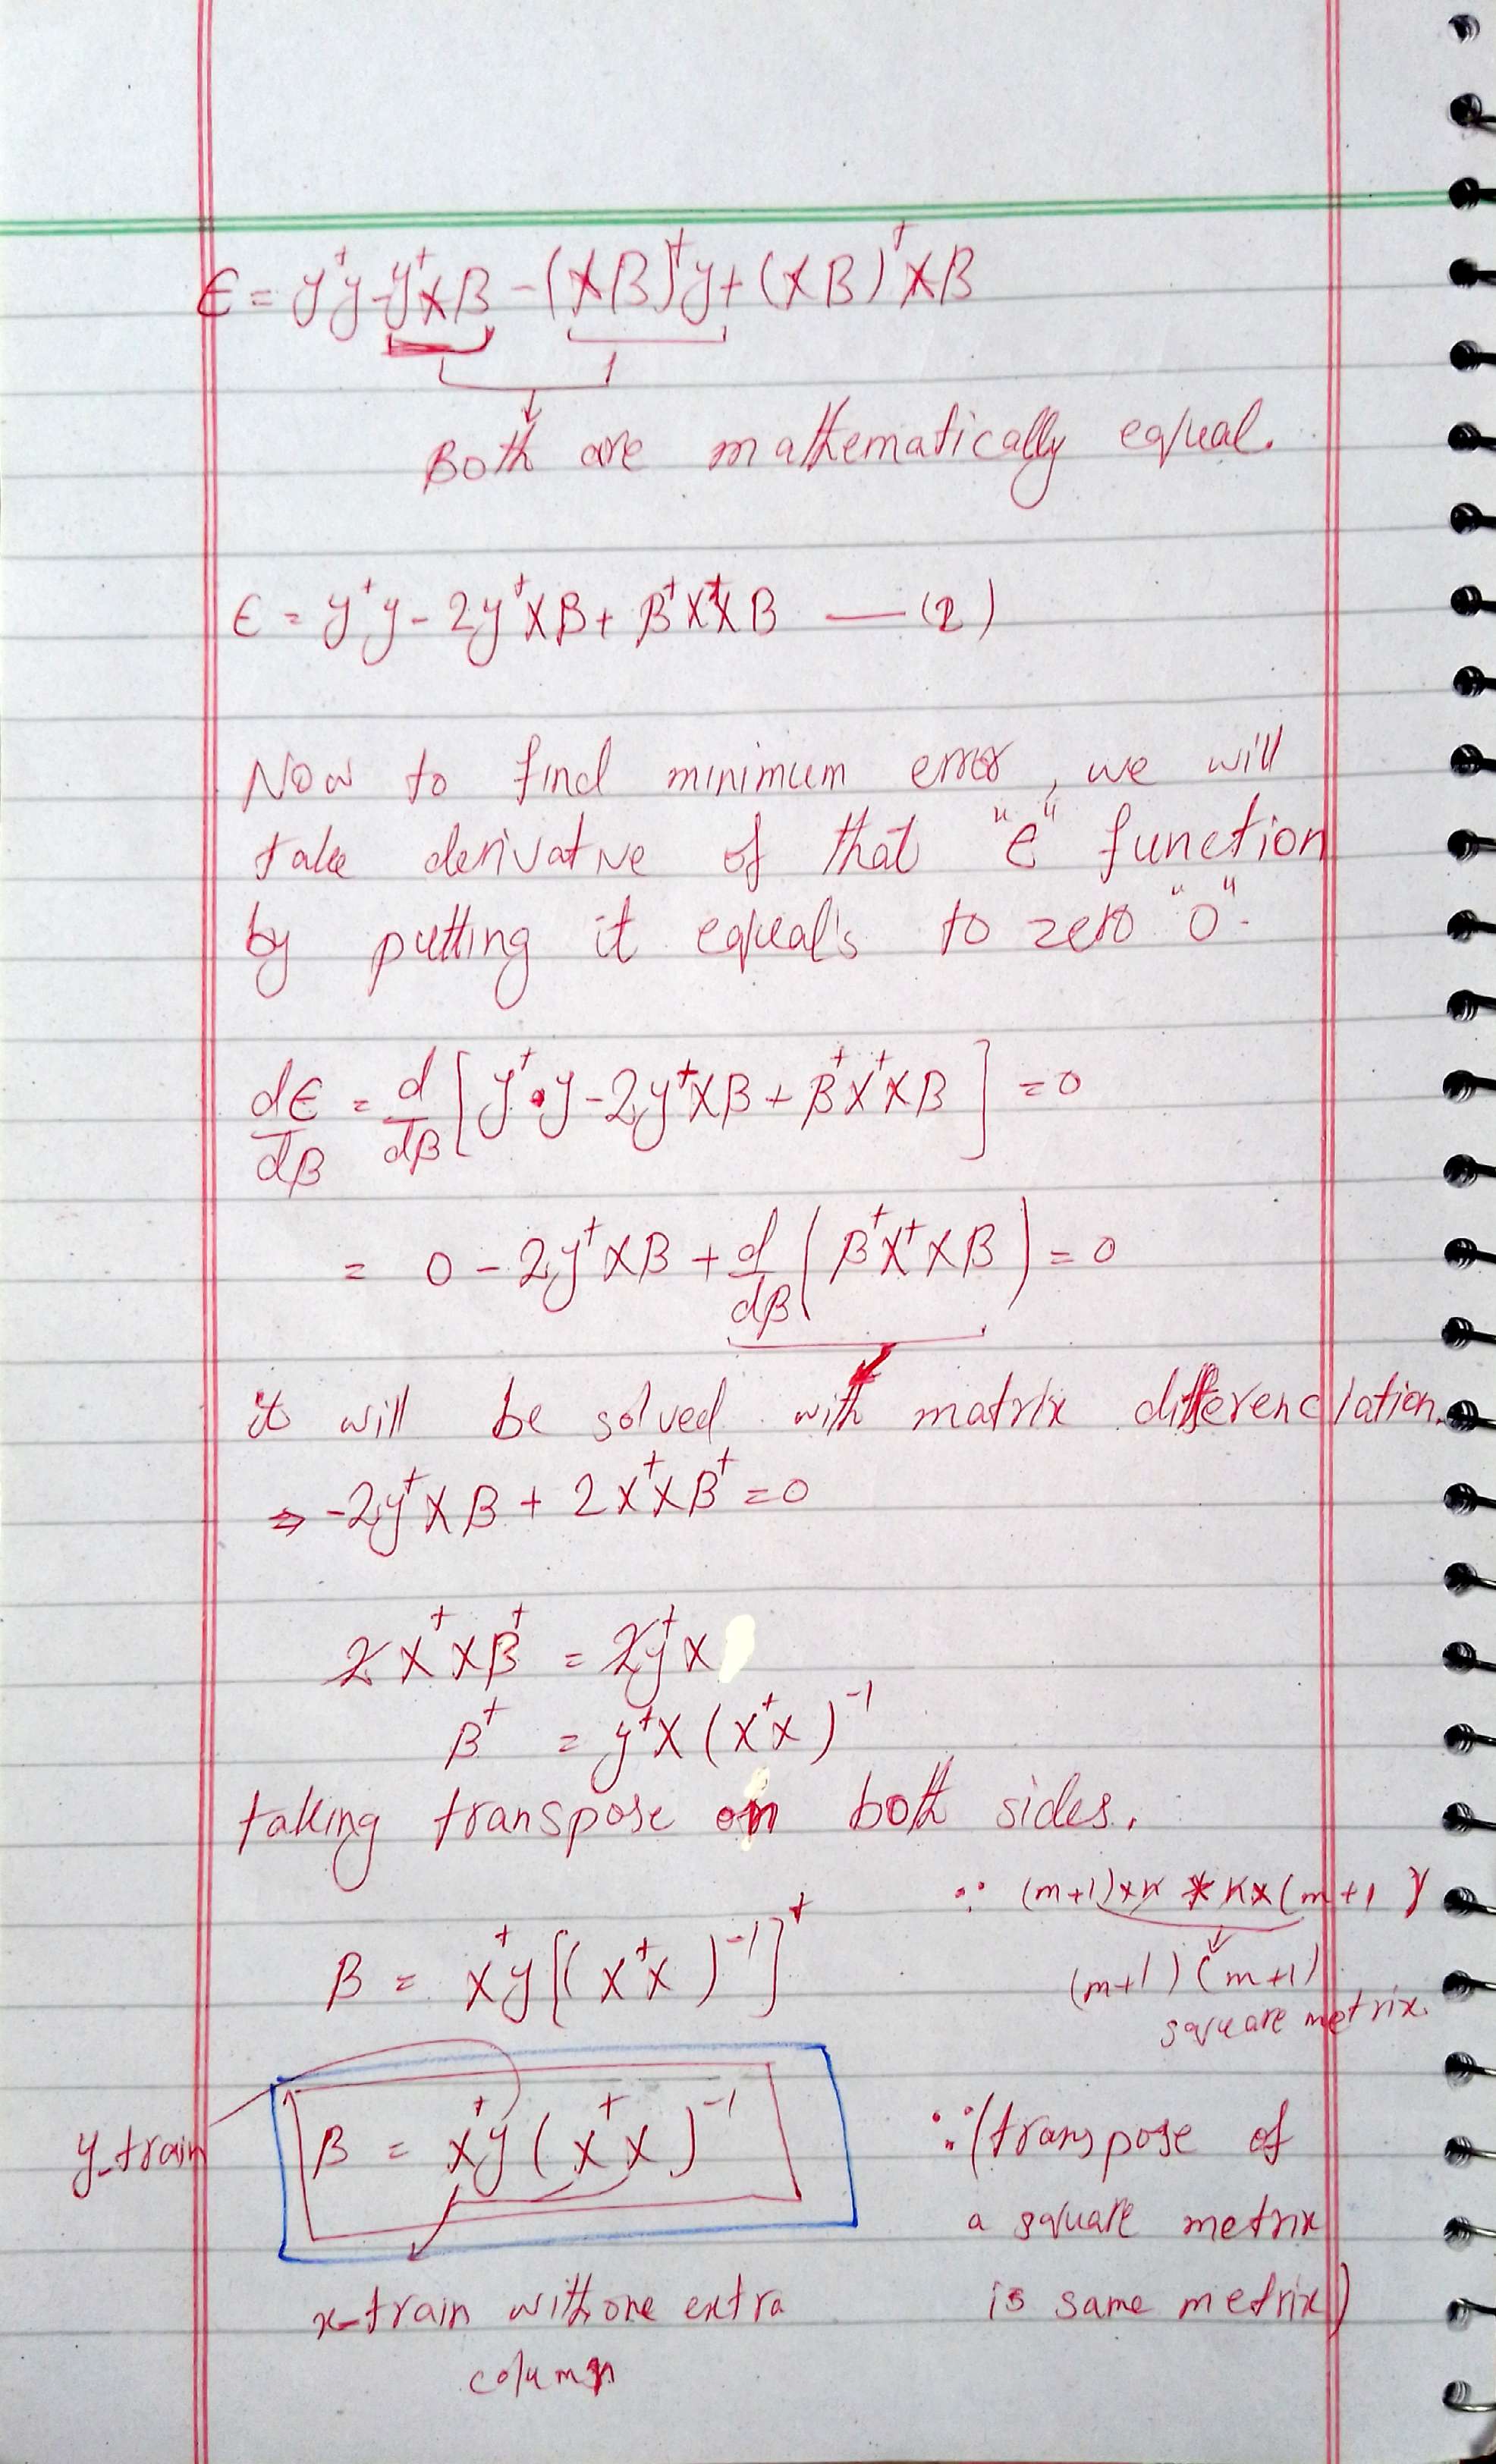 ϵ = yᵗy - yᵗxβ - (xβ)ᵗy + (xβ)ᵗxβ
Both are mathematically equal.
ϵ = yᵗy - 2yᵗxβ + βᵗxᵗxβ — (2)
Now to find minimum error, we will
take derivative of that "ϵ" function
by putting it equal's to zero "0".
dϵ/dβ = d/dβ [yᵗ·y - 2yᵗxβ + βᵗxᵗxβ] = 0
= 0 - 2yᵗxβ + d/dβ (βᵗxᵗxβ) = 0
it will be solved with matrix differenciation.
⇒ -2yᵗxβ + 2xᵗxβᵗ = 0
2xᵗxβᵗ = 2yᵗx
βᵗ = yᵗx(xᵗx)⁻¹
taking transpose on both sides.
∵ (m+1)xn * nx(m+1)
β = xᵗy[(xᵗx)⁻¹]ᵗ
(m+1)(m+1)
square metrix.
y_train
β = xᵗy(xᵗx)⁻¹
∵ (transpose of
a square metrix
is same metrix)
x_train with one extra
column